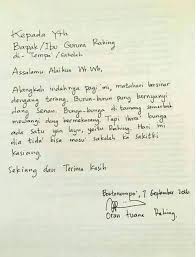 Kepada Yth
Bapak/Ibu Guruna Raking
di- Tempat/Sekolah
Assalamu Alaikum Wr Wb,
Alangkah indahnya pagi ini, matahari bersinar
dengang terang, Burun-burun pung bernyanyi
dang Senam. Bunga-bunga di tamang semerbak
mewangi dang bermekarang Tapi ibu
ada Satu yan layu, yaitu Raking. Hari ini
dia tida' bisa masu' sekolah ka sakitki
kasiang
Sekiang dan Terima Kasih
7 September 2016
Oran tuana Raking.